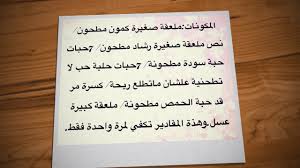 المكونات:ملعقة صغيرة كمون مطحون/
نص ملعقة صغيرة رشاد مطحون/ 7حبات
حبة سودة مطحونة/ 7حبات حلبة حب لا
تطحنية علشان ماتطلع ريحة/ كسرة مر
قد حبة الحمص مطحونة/ ملعقة كبيرة
عسل.وهذة المقادير تكفي لمرة واحدة فقط.